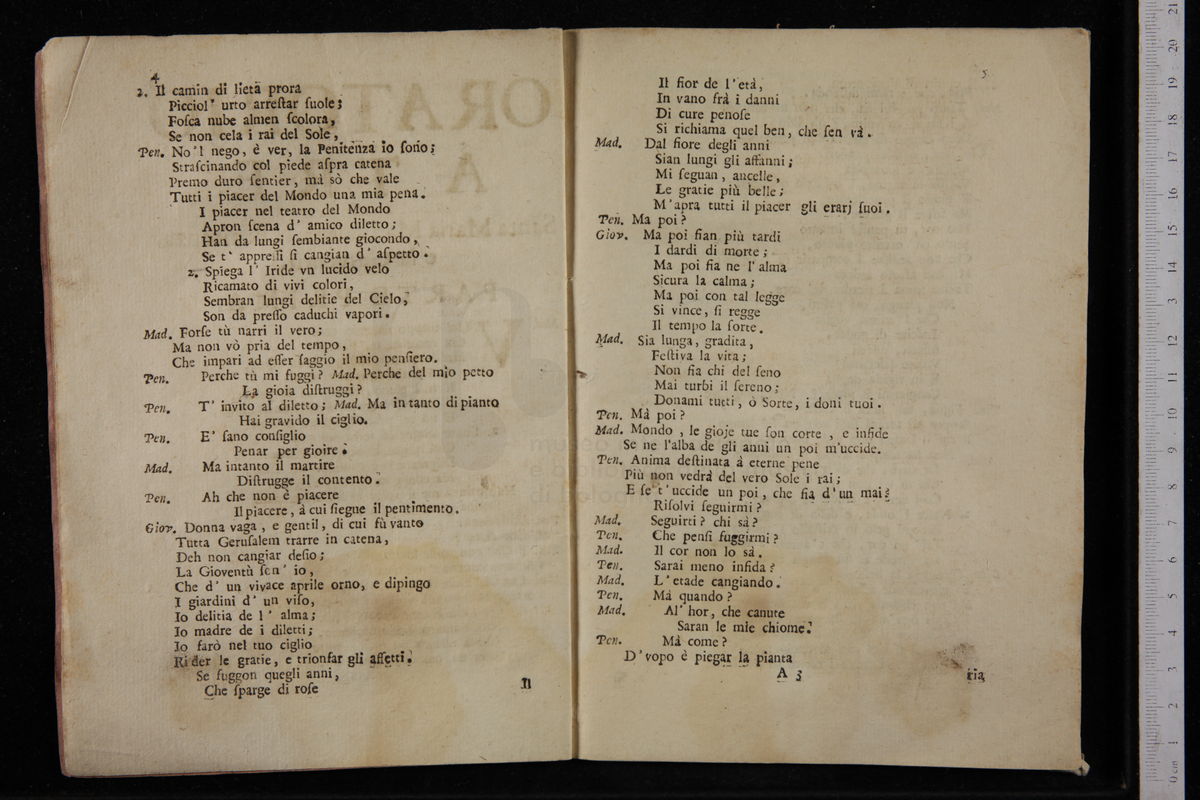 4
2. Il camin di lieta prora
Picciol' urto arreſtar ſuole;
Foſca nube almen ſcolora,
Se non cela i rai del Sole,
Pen. No'l nego, è ver, la Penitenza io ſono;
Straſcinando col piede aſpra catena
Premo duro ſentier, mà sò che vale
Tutti i piacer del Mondo una mia pena.
I piacer nel teatro del Mondo
Apron ſcena d' amico diletto;
Han da lungi ſembiante giocondo,
Se t' appreſſi ſi cangian d' aſpetto.
2. Spiega l' Iride vn lucido velo
Ricamato di vivi colori,
Sembran lungi delitie del Cielo,
Son da preſſo caduchi vapori.
Mad. Forſe tù narri il vero;
Ma non vò pria del tempo,
Che impari ad eſſer ſaggio il mio penſiero.
Pen. Perche tù mi fuggi? Mad. Perche del mio petto
La gioia diſtruggi?
Pen. T' invito al diletto; Mad. Ma in tanto di pianto
Hai gravido il ciglio.
Pen. E' ſano conſiglio
Penar per gioire.
Mad. Ma intanto il martire
Diſtrugge il contento.
Pen. Ah che non è piacere
Il piacere, à cui ſiegue il pentimento.
Giov. Donna vaga, e gentil, di cui fù vanto
Tutta Geruſalem trarre in catena,
Deh non cangiar deſio;
La Gioventù ſen' io,
Che d' un vivace aprile orno, e dipingo
I giardini d' un viſo,
Io delitia de l' alma;
Io madre de i diletti;
Io farò nel tuo ciglio
Rider le gratie, e trionfar gli affetti.
Se fuggon quegli anni,
Che ſparge di roſe
Il
5
Il fior de l'età,
In vano frà i danni
Di cure penoſe
Si richiama quel ben, che ſen và.
Mad. Dal fiore degli anni
Sian lungi gli affanni;
Mi ſeguan, ancelle,
Le gratie più belle;
M'apra tutti il piacer gli erarj ſuoi.
Pen. Ma poi?
Giov. Ma poi ſian più tardi
I dardi di morte;
Ma poi ſia ne l'alma
Sicura la calma;
Ma poi con tal legge
Si vince, ſi regge
Il tempo la ſorte.
Mad. Sia lunga, gradita,
Feſtiva la vita;
Non ſia chi del ſeno
Mai turbi il ſereno;
Donami tutti, ò Sorte, i doni tuoi.
Pen. Mà poi?
Mad. Mondo, le gioje tue ſon corte, e infide
Se ne l'alba de gli anni un poi m'uccide.
Pen. Anima deſtinata à eterne pene
Più non vedrà del vero Sole i rai;
E ſe t'uccide un poi, che fia d'un mai?
Riſolvi ſeguirmi?
Mad. Seguirti? chi sà?
Pen. Che penſi fuggirmi?
Mad. Il cor non lo sà.
Pen. Sarai meno infida?
Mad. L'etade cangiando.
Pen. Mà quando?
Mad. Al' hor, che canute
Saran le mie chiome.
Pen. Mà come?
D'vopo è piegar la pianta
A 3
ria